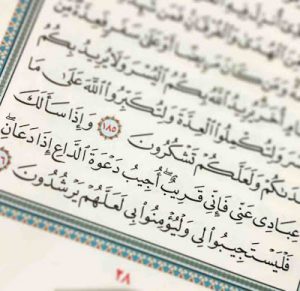 مِّنَ الْهُدَىٰ وَالْفُرْقَانِ فَمَن شَهِدَ
مَرِيضًا أَوْ عَلَىٰ سَفَرٍ فَعِدَّةٌ مِّنْ
أُخَرَ يُرِيدُ اللَّهُ بِكُمُ الْيُسْرَ وَلَا يُرِيدُ بِكُمُ
الْعُسْرَ وَلِتُكْمِلُوا الْعِدَّةَ وَلِتُكَبِّرُوا اللَّهَ عَلَىٰ مَا
هَدَىٰكُمْ وَلَعَلَّكُمْ تَشْكُرُونَ ١٨٥ وَإِذَا سَأَلَكَ
عِبَادِي عَنِّي فَإِنِّي قَرِيبٌ أُجِيبُ دَعْوَةَ الدَّاعِ إِذَا دَعَانِ
فَلْيَسْتَجِيبُوا لِي وَلْيُؤْمِنُوا بِي لَعَلَّهُمْ يَرْشُدُونَ
٢٨